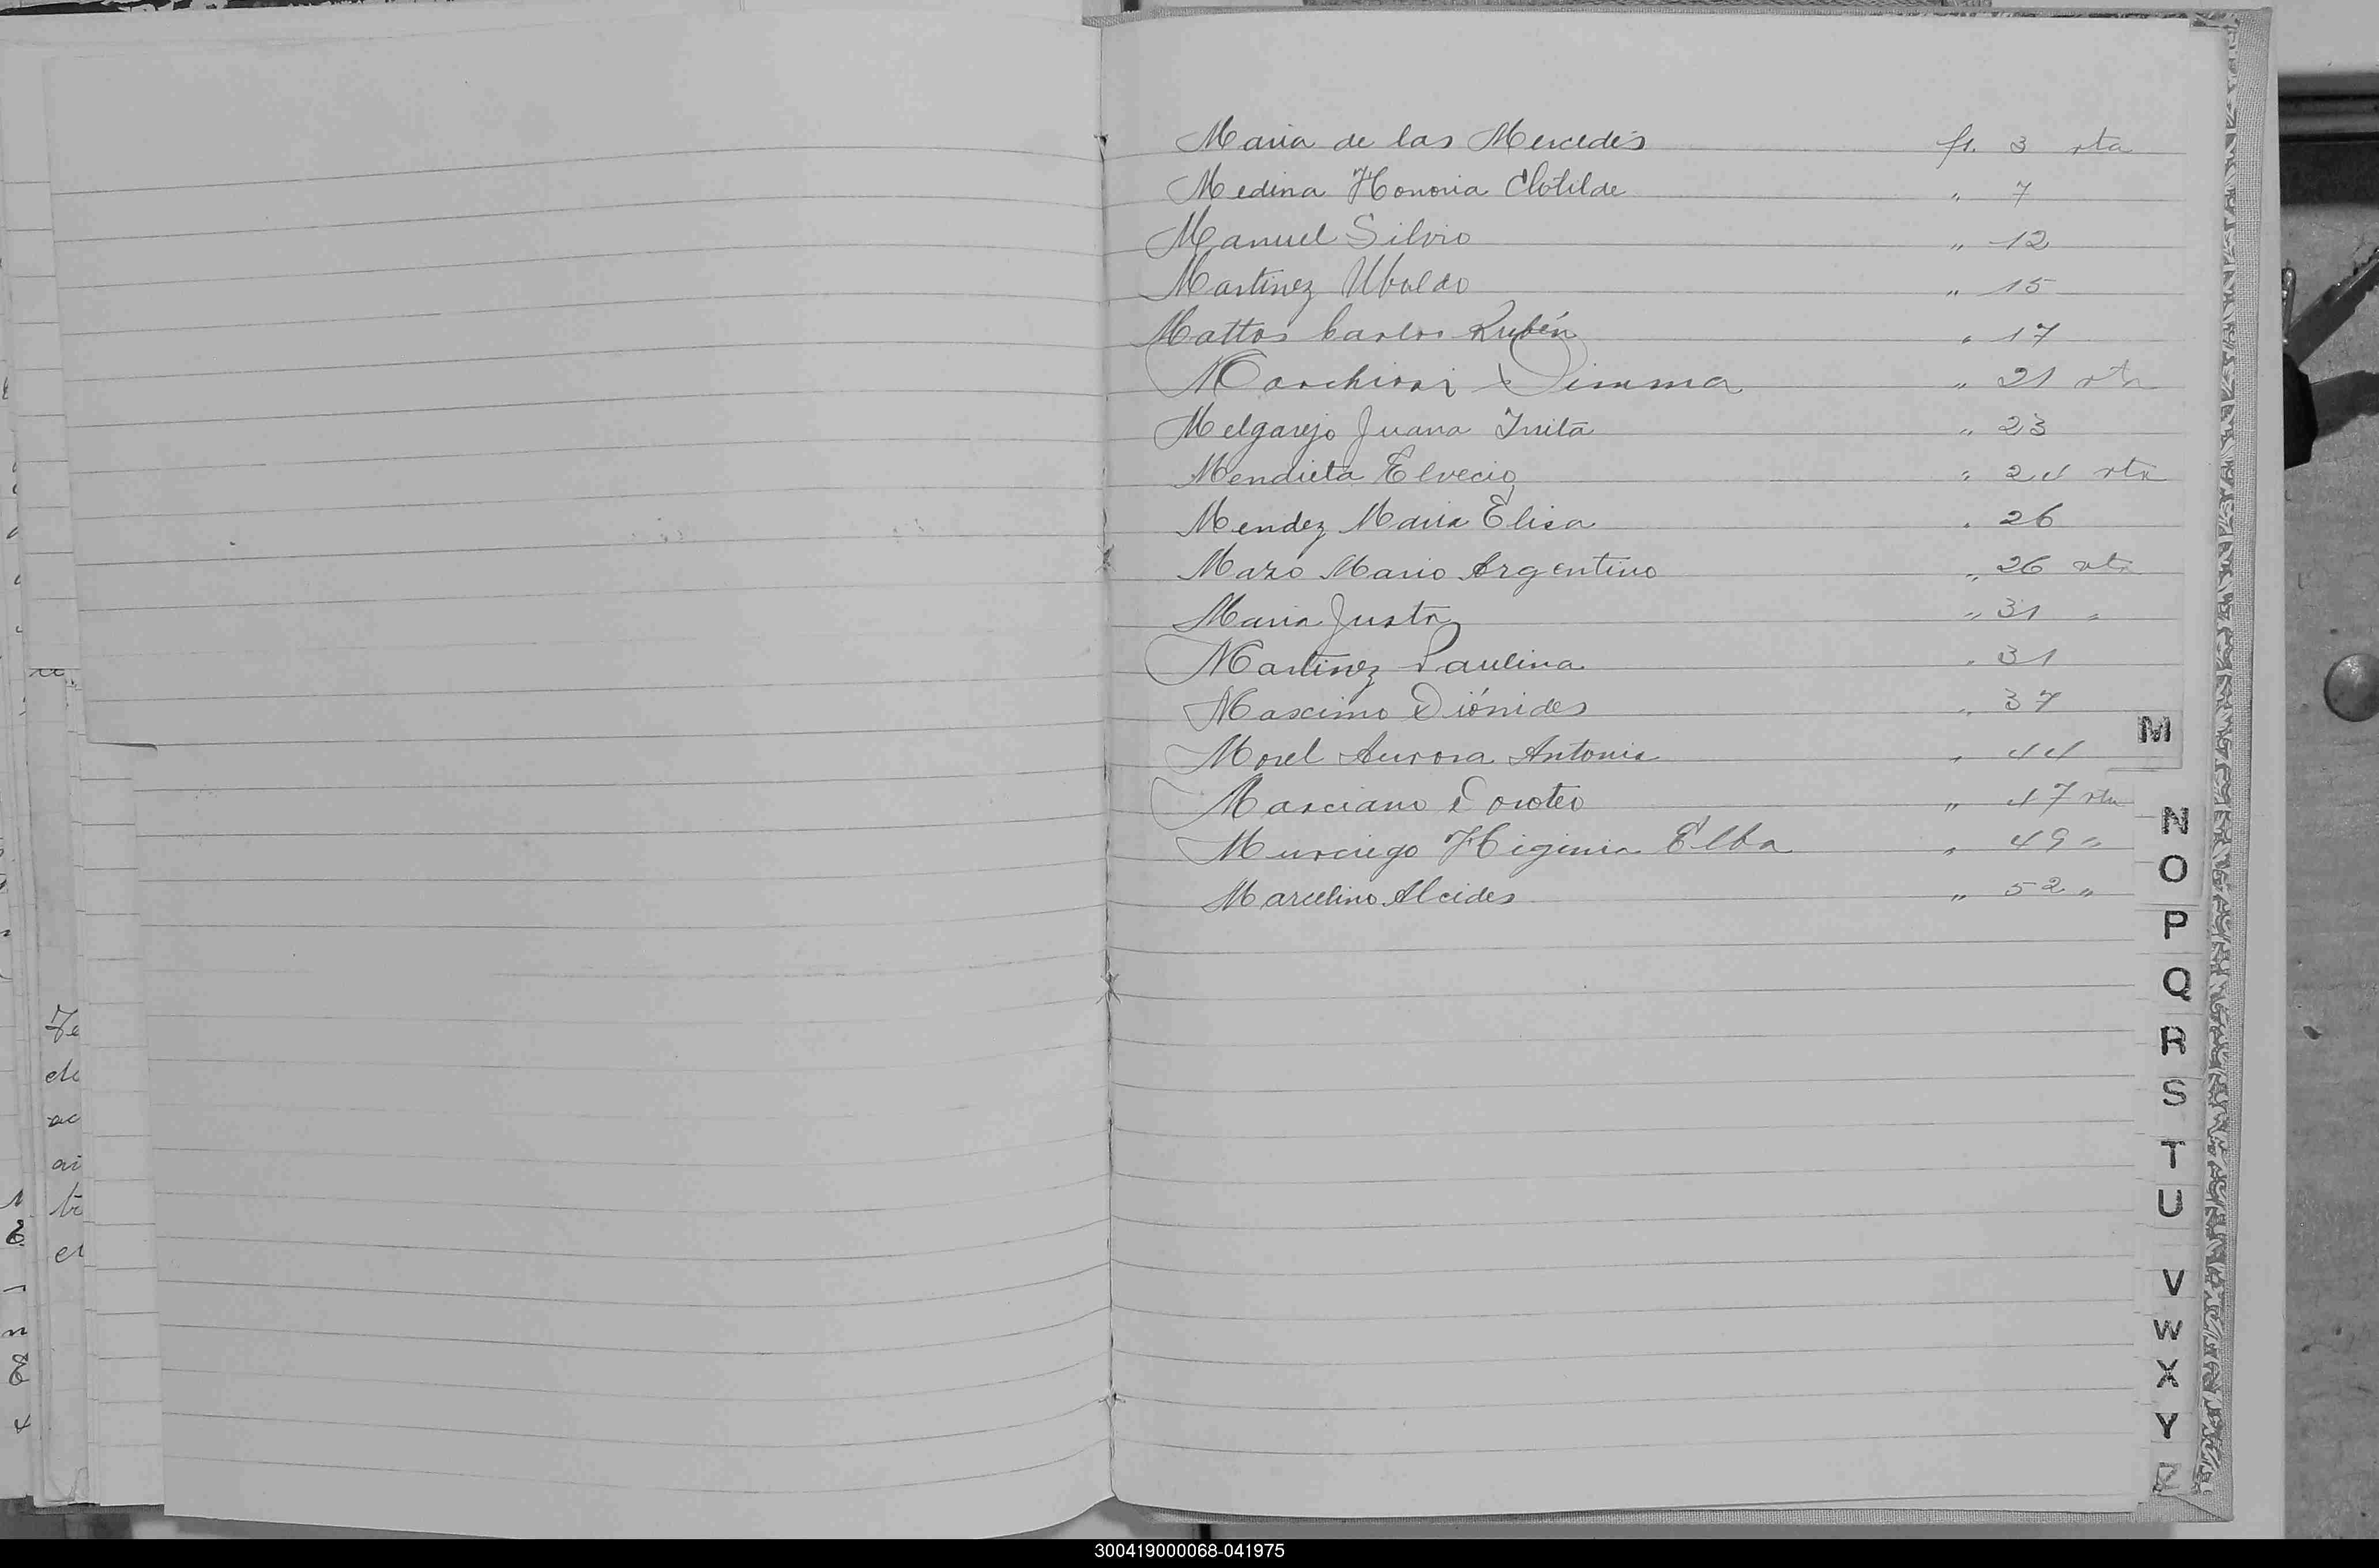 Maria de las Mercedes fs. 3 vta
Medina Honoria Clotilde " 7
Manuel Silvio " 12
Martinez Ubaldo " 15
Mattos Carlos Rubén " 17
Dimma " 21 vta
Melgarejo Juana Irrita " 23
Mendieta Elvecio " 24 vta
Mendez Maria Elisa " 26
Mazo Mario Argentino " 26 vta
Maria Justa " 31 "
Martinez Paulina " 31
Maximo Diónides " 37
Morel Aurora Antonia " 44
Marciano Doroteo " 47 vta
Murciego Higinia Elba " 49 "
Marcelino Alcides " 52 "
M
N
O
P
Q
R
S
T
U
V
W
X
Y
Z
300419000068-041975